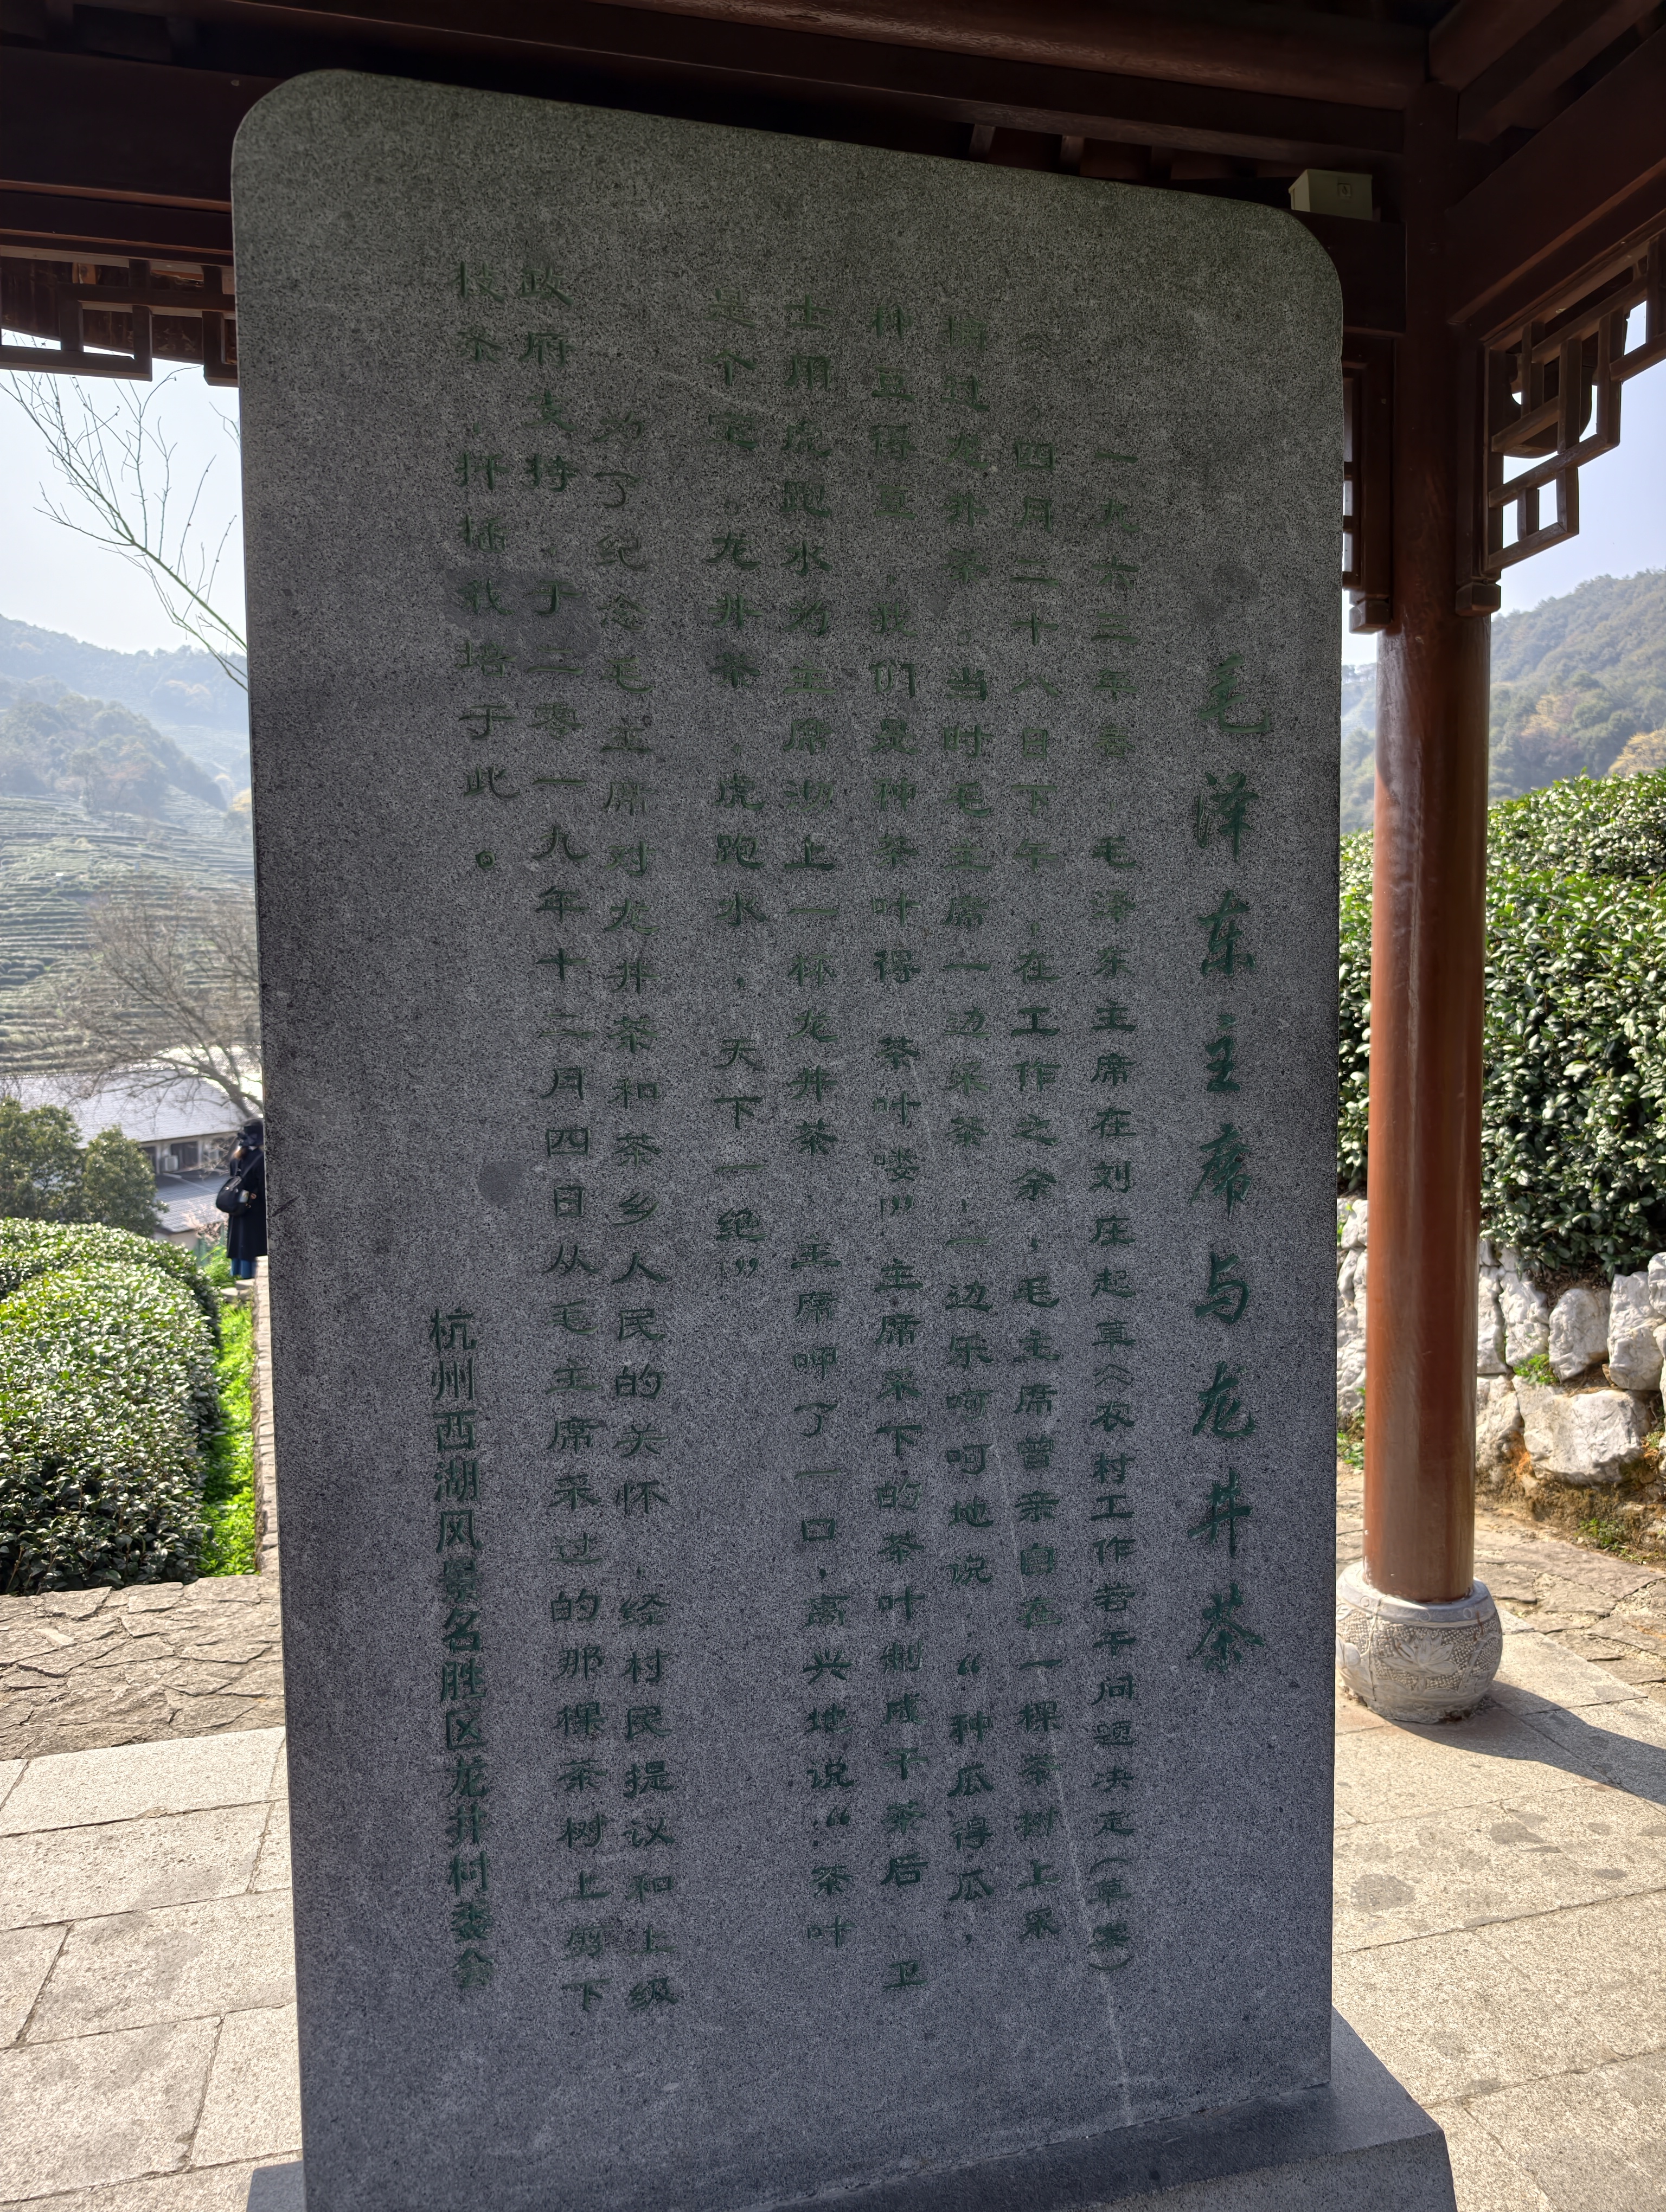 毛泽东主席与龙井茶
一九六三年春,毛泽东主席在刘庄起草《农村工作若干问题决定(草案)
》。四月二十八日下午,在工作之余,毛主席曾亲自在一棵茶树上采
摘过龙井茶。当时毛主席一边采茶,一边乐呵呵地说:“种瓜得瓜,
种豆得豆,我们是种茶叶得茶叶喽!”主席采下的茶叶制成干茶后,卫
士用虎跑水为主席沏上一杯龙井茶,主席呷了一口,高兴地说:“茶叶
是个宝。龙井茶,虎跑水,天下一绝”
为了纪念毛主席对龙井茶和茶乡人民的关怀,经村民提议和上级
政府支持,于二零一九年十二月四日从毛主席采过的那棵茶树上剪下
枝条,扦插栽培于此。
杭州西湖风景名胜区龙井村委会